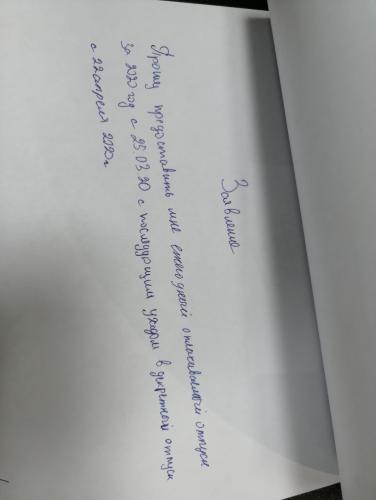 Заявление
Прошу предоставить мне ежегодный оплачиваемый отпуск
за 2020 год с 25 03 20 с последующим уходом в декретный отпуск
с 22 апреля 2020г